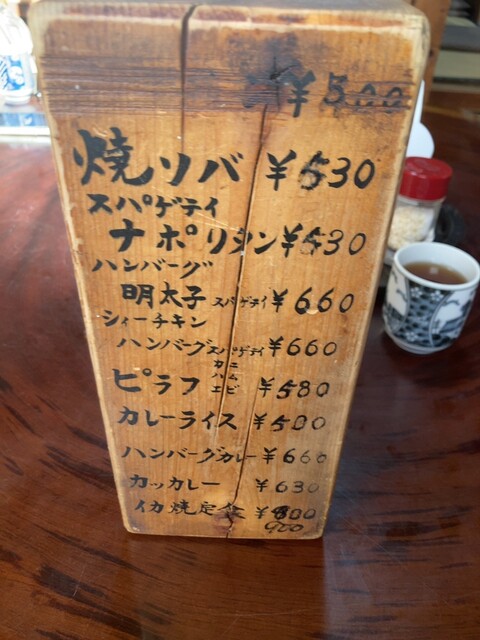 ¥500
焼ソバ ¥530
スパゲテイ
ナポリタン ¥530
ハンバーグ
明太子 スパゲテイ ¥660
シィーチキン
ハンバーグ スパゲテイ ¥660
ピラフ カニ ハム エビ ¥580
カレーライス ¥500
ハンバーグカレー ¥660
カッカレー ¥630
イカ焼定食 ¥800
900